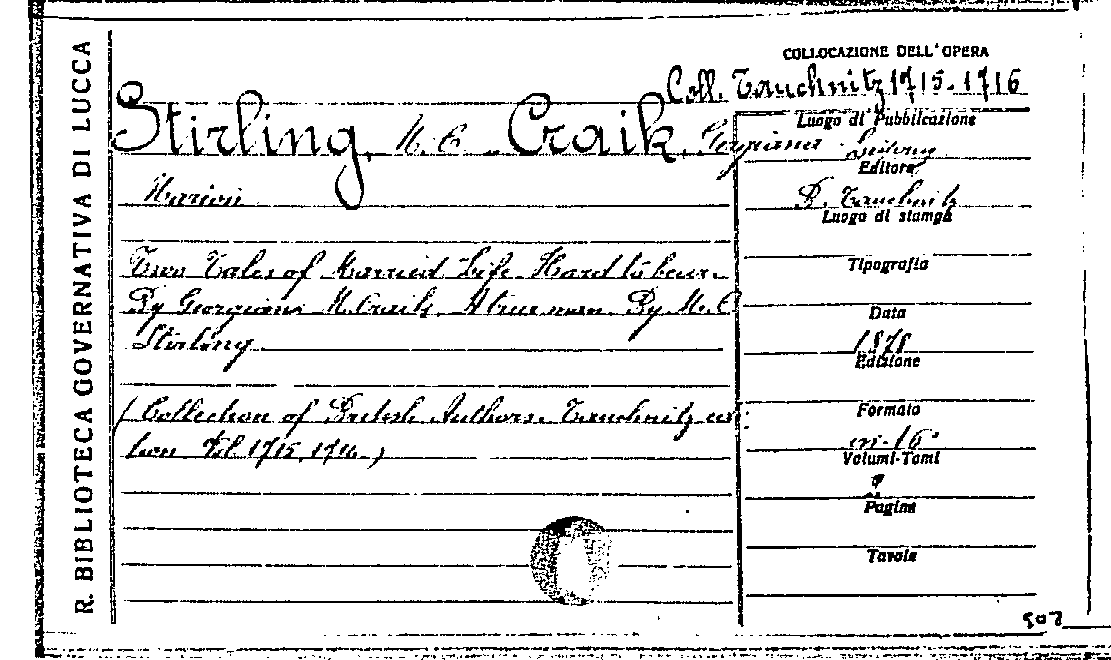 R. BIBLIOTECA GOVERNATIVA DI LUCCA
COLLOCAZIONE DELL'OPERA
Coll. Tauchnitz 1715-1716
Stirling, M. C. Craik, Georgiana
Marion
Two Tales of Married Life. Hard to bear.
By Georgiana M. Craik. A true man. By M. C.
Stirling
(Collection of British Authors. Tauchnitz edi-
tion Vol. 1715, 1716.)
Luogo di Pubblicazione
Editore
B. Tauchnitz
Luogo di stampa
Tipografia
Data
1878
Edizione
Formato
in-16°
Volumi-Tomi
Pagine
Tavole